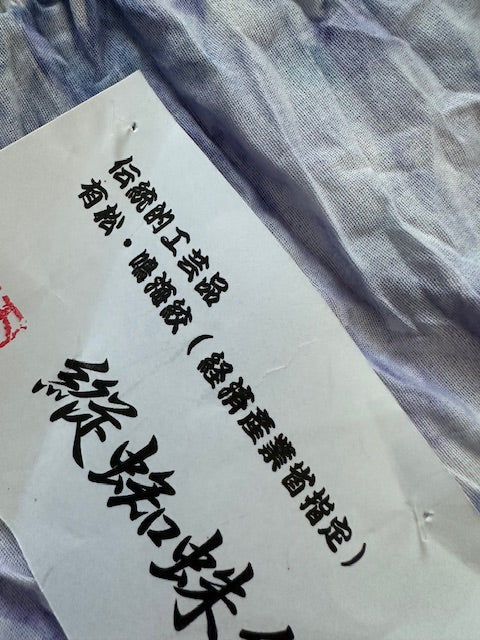 伝統的工芸品
有松・鳴海絞(経済産業省指定)
縦蜘蛛